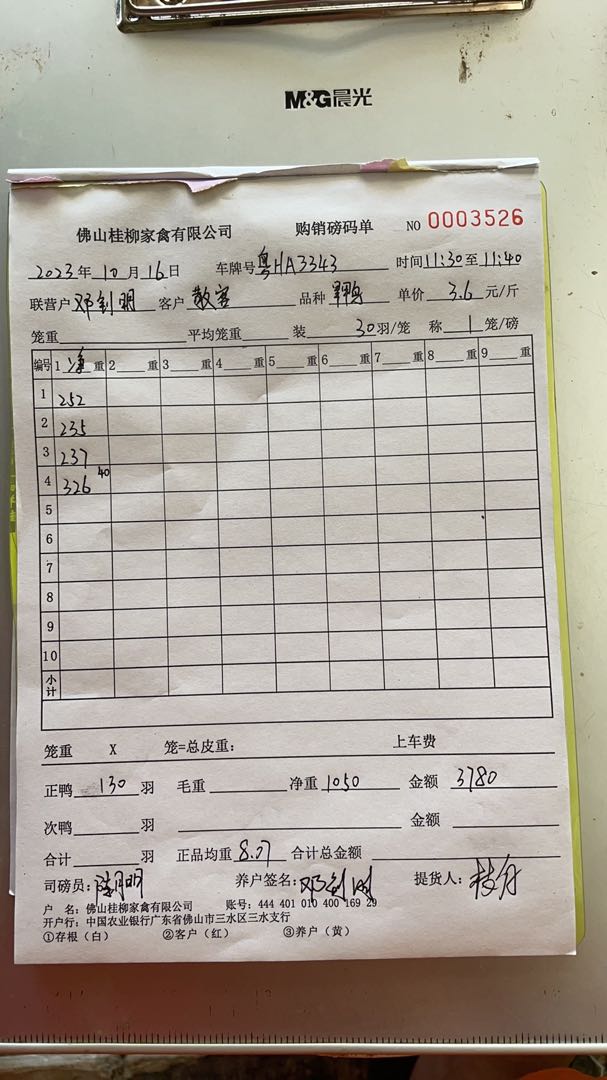 M&G晨光
佛山桂柳家禽有限公司 购销磅码单 NO 0003526
2023年10月16日 车牌号粤HA3343 时间11:30至11:40
联营户邓剑明 客户散客 品种 单价3.6元/斤
笼重 平均笼重 装30羽/笼 称1笼/磅
编号 1净重 2重 3重 4重 5重 6重 7重 8重 9重
1 252
2 235
3 237
4 326 40
5
6
7
8
9
10
小计
笼重 X 笼=总皮重: 上车费
正鸭130羽 毛重 净重1050 金额3780
次鸭 羽 金额
合计 羽 正品均重8.07 合计总金额
司磅员: 养户签名:邓剑明 提货人:
户 名: 佛山桂柳家禽有限公司 账号: 444 401 010 400 169 29
开户行: 中国农业银行广东省佛山市三水区三水支行
①存根(白) ②客户(红) ③养户(黄)